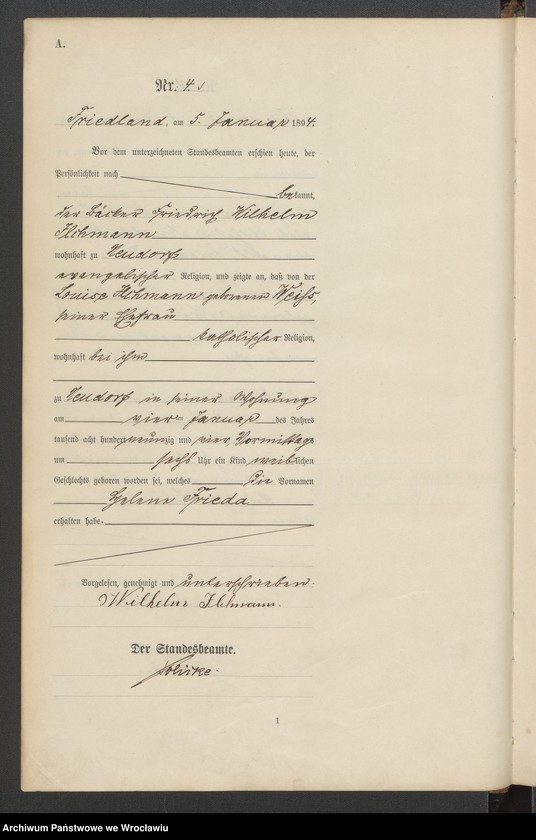 A.
Nr. 4.
Friedland. am 5. Januar 1894.
Vor dem unterzeichneten Standesbeamten erschien heute, der
Persönlichkeit nach
bekannt,
der Bäcker Friedrich Wilhelm
Ilchmann
wohnhaft zu Neudorf
evangelischer Religion, und zeigte an, daß von der
Louise Ilchmann geborenen Weiß,
seiner Ehefrau
katholischer Religion,
wohnhaft bei ihm
zu Neudorf in seiner Wohnung
am vierten Januar des Jahres
tausend acht hundert neunzig und vier, Vormittags
um sechs Uhr ein Kind weiblichen
Geschlechts geboren worden sei, welches die Vornamen
Helene Frieda
erhalten habe.
Vorgelesen, genehmigt und unterschrieben.
Wilhelm Ilchmann.
Der Standesbeamte.
1
Archiwum Państwowe we Wrocławiu